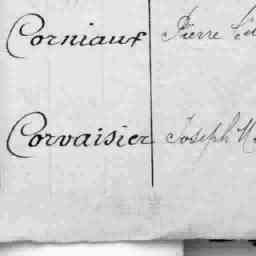 Corniaux Pierre
Corvaisier Joseph